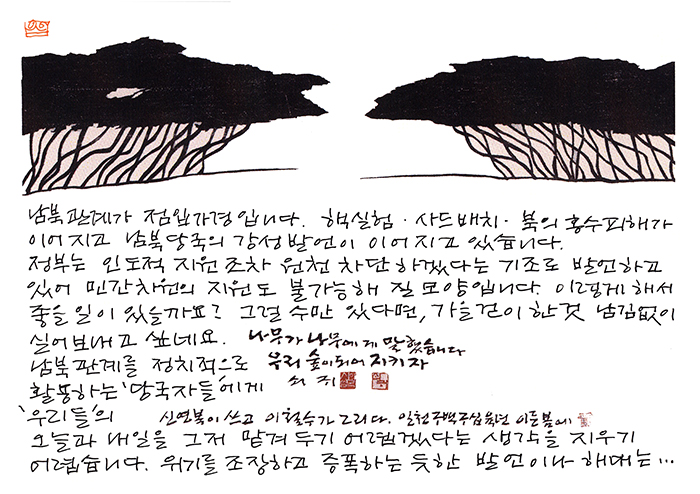 남북관계가 점입가경입니다. 핵실험·사드배치·북의 홍수피해가
이어지고 남북당국의 감성발언이 이어지고 있습니다.
정부는 인도적 지원조차 원천 차단하겠다는 기조로 발언하고
있어 민간차원의 지원도 불가능해 질 모양입니다. 이렇게 해서
좋을 일이 있을까요? 그럴 수만 있다면, 가을걷이 한 것 남김없이
실어보내고 싶네요.
나무가 나무에게 말했습니다
우리 숲이되어 지키자
남북관계를 정치적으로
활용하는 '당국자들'에게
'우리들'의
신영복이 쓰고 이철수가 그리다. 일천구백구십육년 이른봄에
오늘과 내일을 그저 맡겨 두기 어렵겠다는 생각을 지우기
어렵습니다. 위기를 조장하고 증폭하는 듯한 발언이나 해대는…